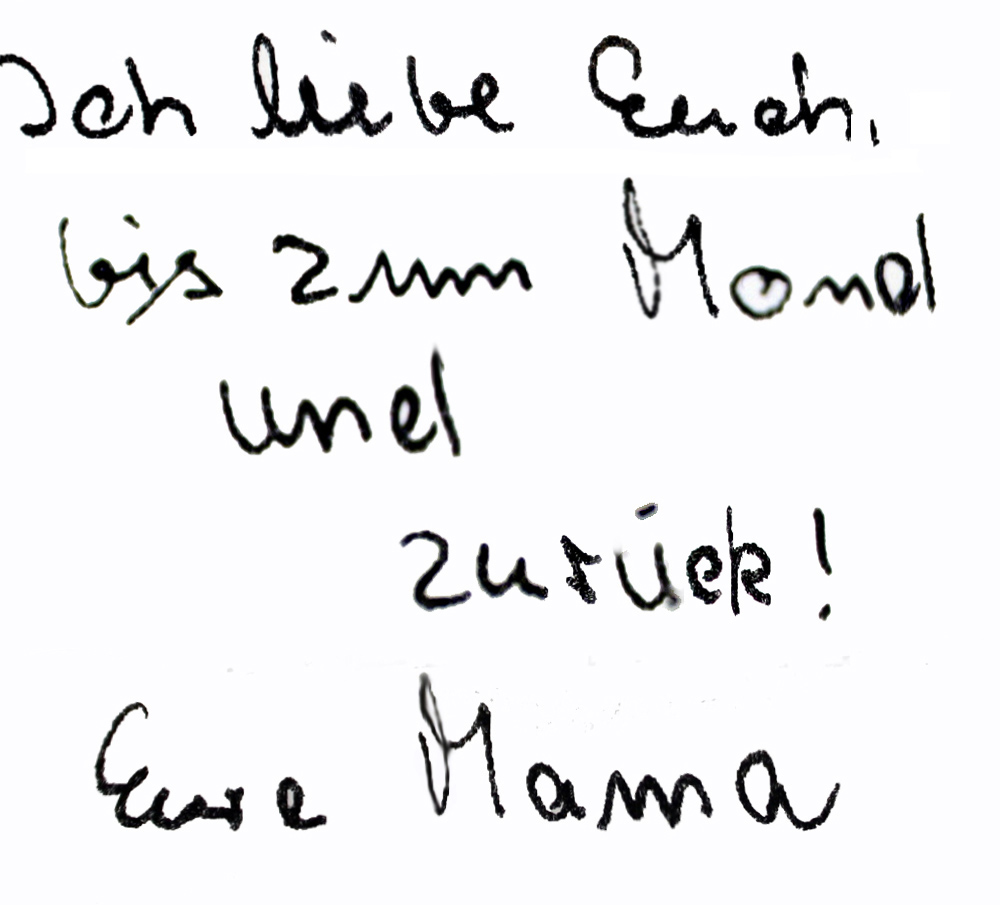 Ich liebe Euch,
bis zum Mond
und
zurück!
Eure Mama